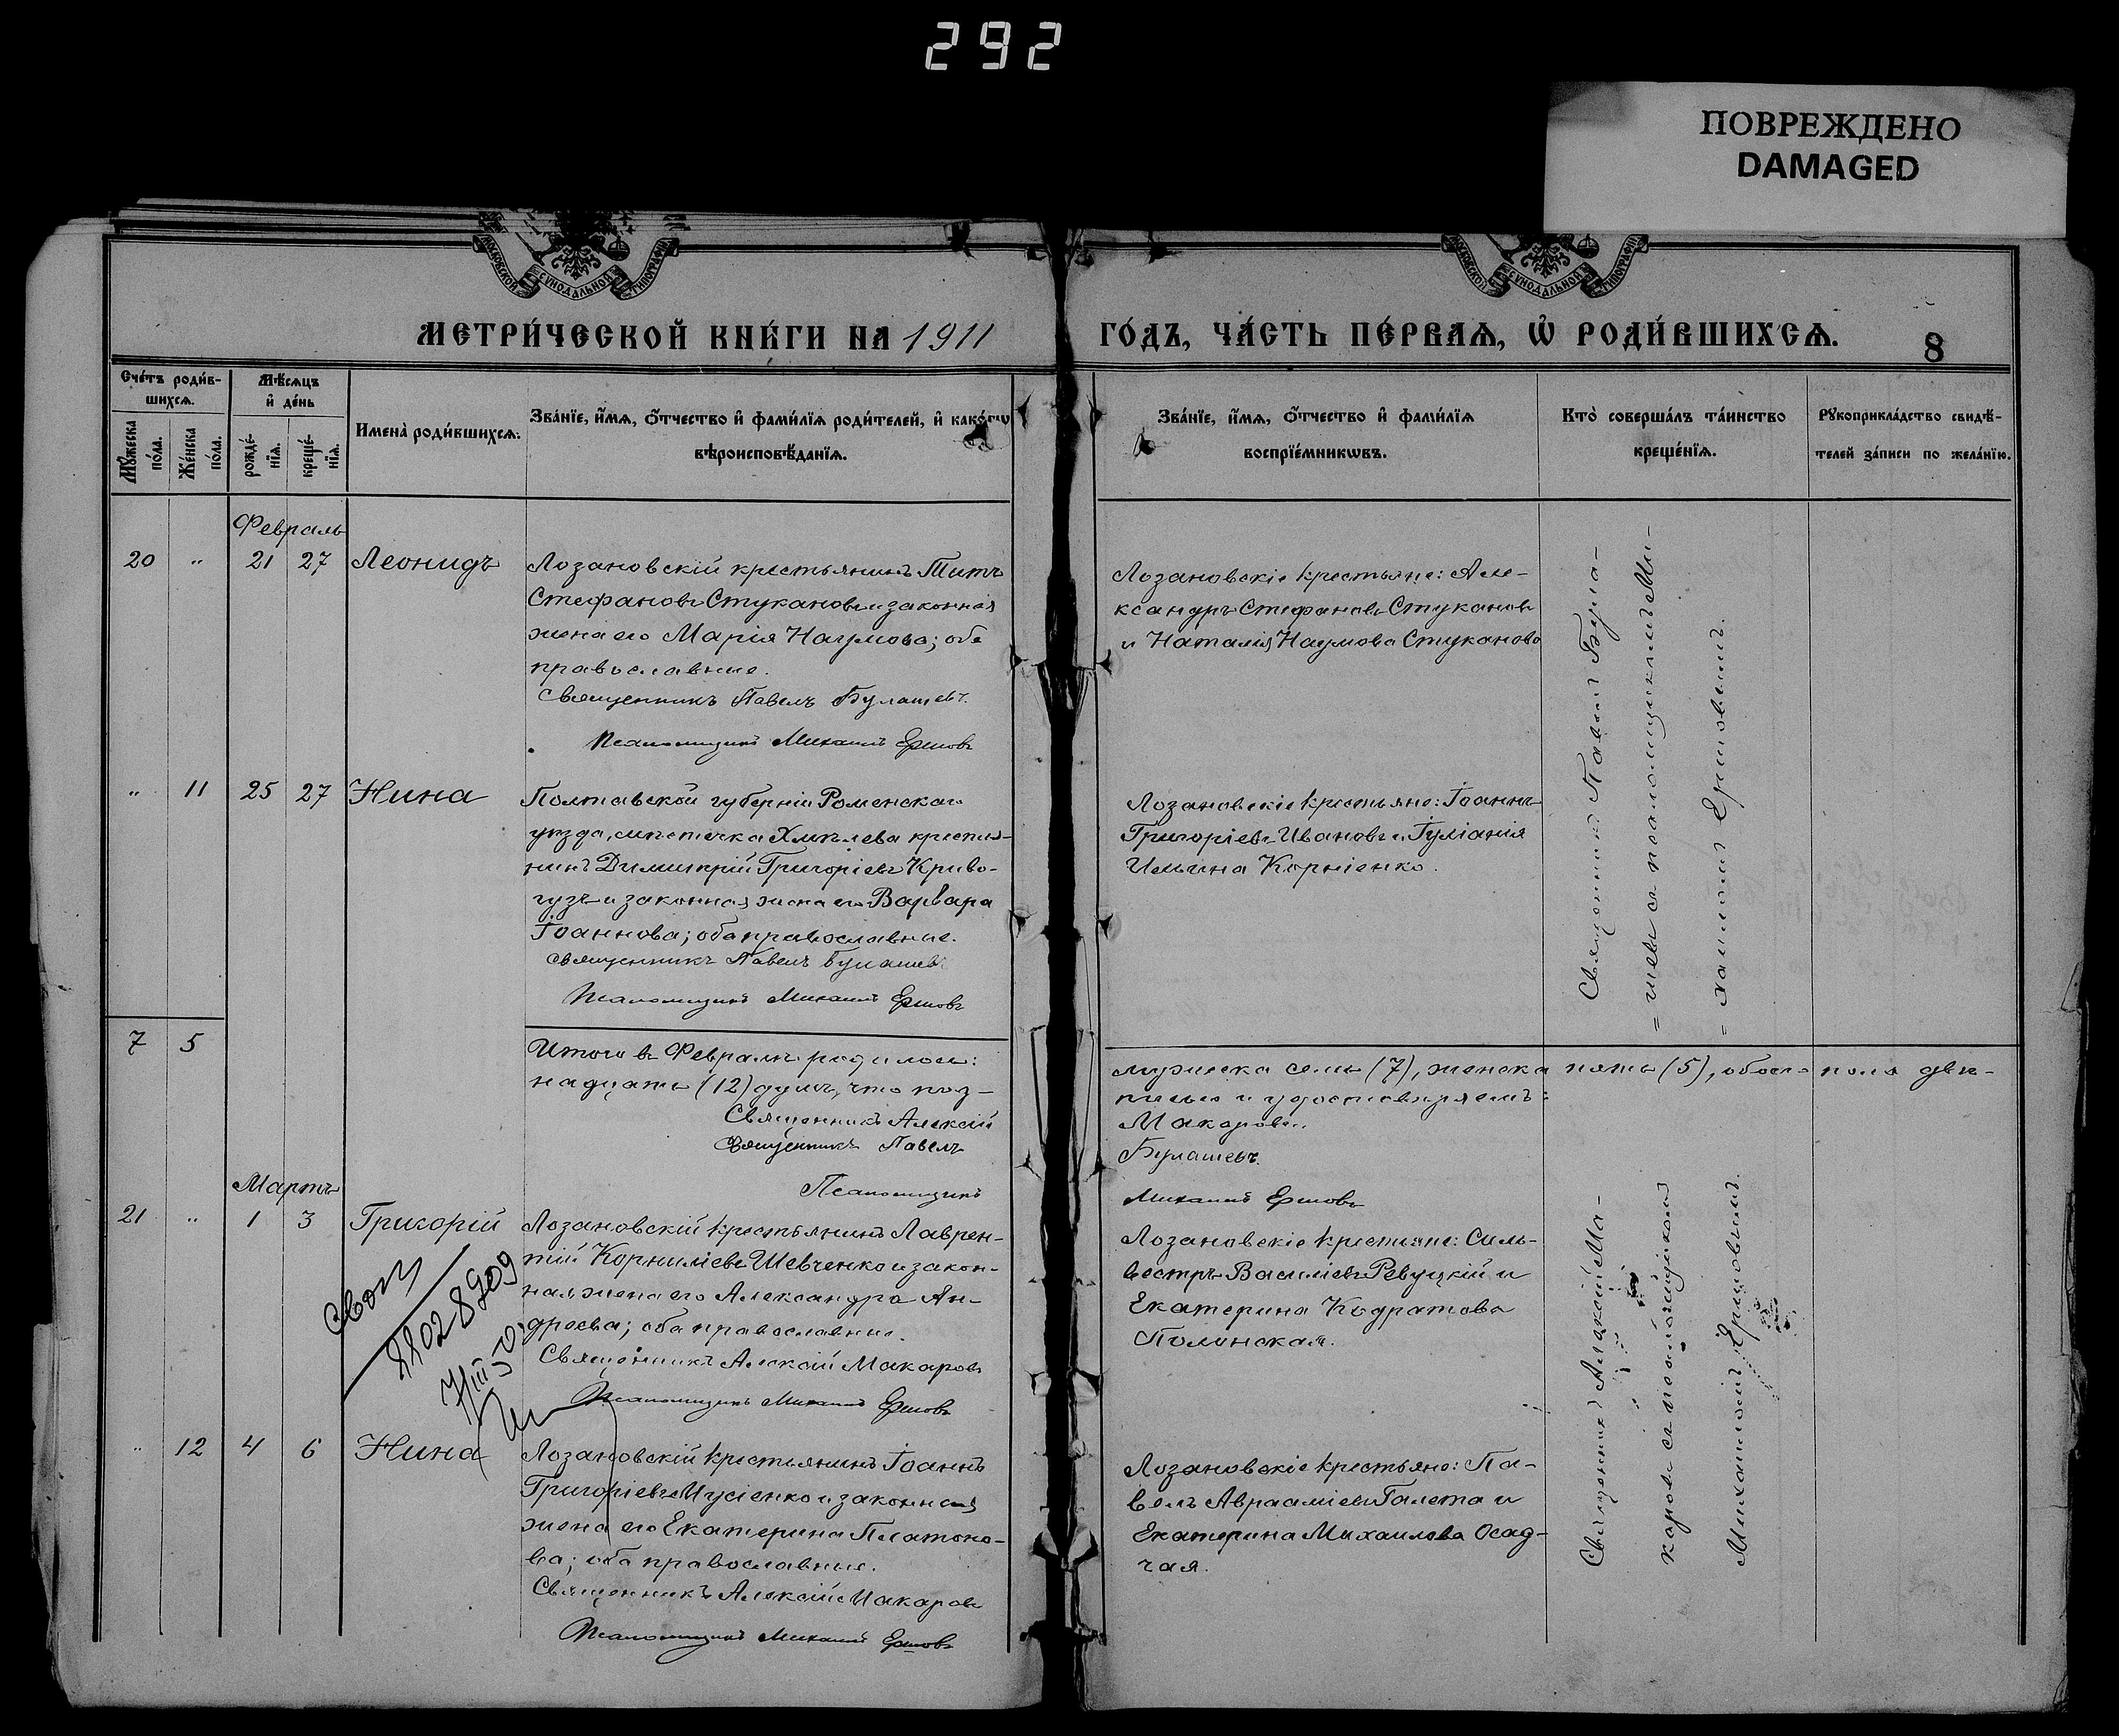 292
ПОВРЕЖДЕНО
DAMAGED
МОСКОВСКОЙ СУНОДАЛЬНОЙ ТИПОГРАФІИ
МОСКОВСКОЙ СУНОДАЛЬНОЙ ТИПОГРАФІИ
МЕТРИ́ЧЕСКОЙ КНИ́ГИ НА 1911
ГО́ДЪ, ЧА́СТЬ ПЕ́РВАѦ, Ѡ҆ РОДИ́ВШИХСѦ.
8
Сче́тъ роди́в-
шихсѧ.
Мѣ́сѧцъ
и҆ де́нь
Мꙋ́жеска
по́ла.
Же́нска
по́ла.
рожде́-
нїѧ.
креще́-
нїѧ.
Имена̀ роди́вшихсѧ.
Зва́нїе, и҆́мѧ, ѻ҆́тчество и҆ фами́лїѧ роди́телей, и҆ како́гѡ
вѣроисповѣ́данїѧ.
Зва́нїе, и҆́мѧ, ѻ҆́тчество и҆ фами́лїѧ
воспрїе́мникѡвъ.
Кто̀ соверша́лъ та́инство
креще́нїѧ.
Рꙋкоприкла́дство свидѣ́-
телей за́писи по жела́нїю.
Февраль
20 " 21 27 Леонидъ
Лозановскій крестьянинъ Титъ
Стефановъ Стукановъ и законная
жена его Марія Наумова; оба
православные.
Священникъ Павелъ Булашевъ.
Псаломщикъ Михаилъ Ершовъ
Лозановскіе крестьяне: Але-
ксандръ Стефановъ Стукановъ
и Наталія Наумова Стуканова
Священникъ Павелъ Була-
=шевъ съ псаломщикомъ Ми-
=хаиломъ Ершовымъ.
" 11 25 27 Нина
Полтавской губерніи Роменскаго
уѣзда, мѣстечка Хмѣлева крестья-
нинъ Димитрій Григоріевъ Криво-
гузъ и законная жена его Варвара
Іоаннова; оба православные.
Священникъ Павелъ Булашевъ
Псаломщикъ Михаилъ Ершовъ
Лозановскіе крестьяне: Іоаннъ
Григоріевъ Ивановъ и Іуліанія
Ильина Корніенко.
7 5
Итого въ Февралѣ родилось:
мужеска семь (7), женска пять (5), обоего пола двѣ-
надцать (12) душъ, что под-
писью и удостовѣряемъ:
Священникъ Алексій
Макаровъ.
Священникъ Павелъ
Булашевъ.
Псаломщикъ
Михаилъ Ершовъ
Мартъ
21 " 1 3 Григорій
Лозановскій крестьянинъ Лаврен-
тій Корниліевъ Шевченко и закон-
ная жена его Александра Ан-
дреева; оба православные.
Священникъ Алексій Макаровъ
Псаломщикъ Михаилъ Ершовъ
Лозановскіе крестьяне: Силь-
вестръ Василіевъ Ревуцкій и
Екатерина Кодратова
Полинская.
Священникъ Алексій Ма-
каровъ съ псаломщикомъ
Михаиломъ Ершовымъ.
" 12 4 6 Нина
Лозановскій крестьянинъ Іоаннъ
Григоріевъ Мусіенко и законная
жена его Екатерина Платоно-
ва; оба православные.
Священникъ Алексій Макаровъ
Псаломщикъ Михаилъ Ершовъ
Лозановскіе крестьяне: Па-
велъ Авраміевъ Галета и
Екатерина Михаилова Осад-
чая.